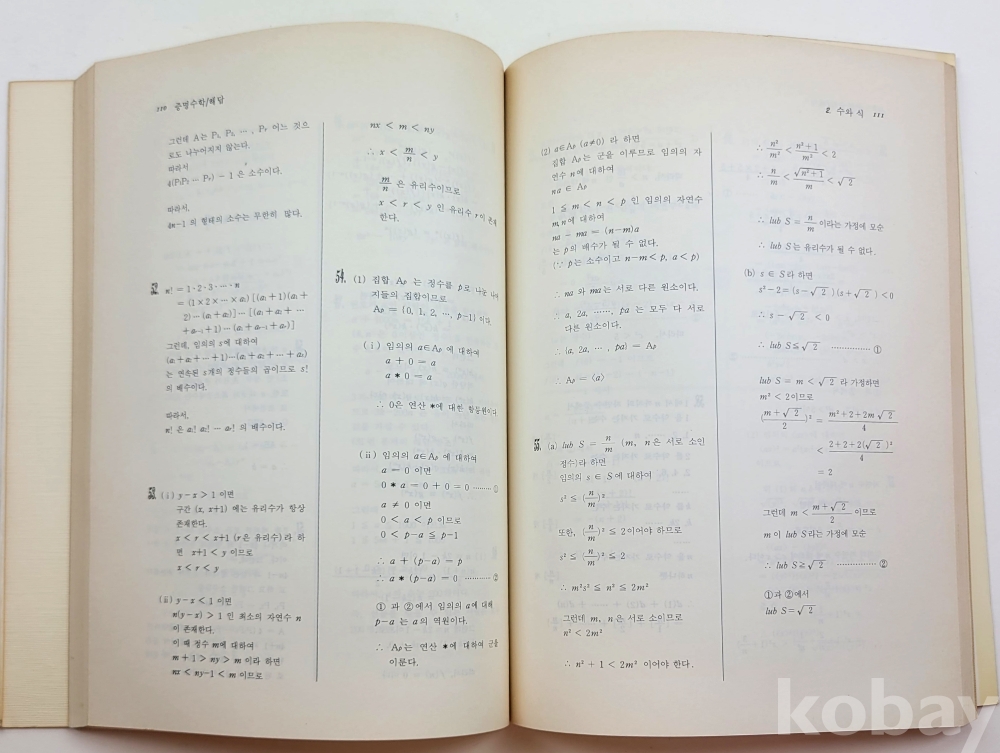 110 증명수학/해답
그런데 A는 P₁, P₂, ⋯ , Pr 어느 것으
로도 나누어지지 않는다.
따라서
4(P₁P₂ ⋯ Pr) − 1 은 소수이다.
따라서,
4m−1 의 형태의 소수는 무한히 많다.
52. n! = 1·2·3· ⋯ ·n
= (1×2× ⋯ ×a₁) [(a₁+1)(a₁+
2)⋯(a₁+a₂)]⋯ [(a₁+a₂+ ⋯
+aᵣ₋₁+1)⋯(a₁+aᵣ₋₁+aᵣ)]
그런데, 임의의 s에 대하여
는 연속된 s개의 정수들의 곱이므로 s!
의 배수이다.
따라서,
n! 은 a₁! a₂! ⋯ aᵣ! 의 배수이다.
53. (i) y−x > 1 이면
구간 (x, x+1) 에는 유리수가 항상
존재한다.
x < r < x+1 (r은 유리수)라 하
면 x+1 < y 이므로
x < r < y
(ii) y−x < 1 이면
n(y−x) > 1 인 최소의 자연수 n
이 존재한다.
이 때 정수 m에 대하여
m+1 > ny > m 이라 하면
nx < ny−1 < m 이므로
nx < m < ny
∴ x < m/n < y
m/n 은 유리수이므로
x < r < y 인 유리수 r이 존재
한다.
54. (1) 집합 Aₚ 는 정수를 p로 나눈 나머
지들의 집합이므로
Aₚ = {0, 1, 2, ⋯, p−1} 이다.
(i) 임의의 a∈Aₚ 에 대하여
a + 0 = a
a * 0 = a
∴ 0은 연산 *에 대한 항등원이다
(ii) 임의의 a∈Aₚ 에 대하여
a = 0 이면
0 * a = 0 + 0 = 0 ⋯⋯⋯ ①
a ≠ 0 이면
0 < a < p 이므로
0 < p−a ≦ p−1
∴ a + (p−a) = p
∴ a * (p−a) = 0 ⋯⋯⋯⋯ ②
① 과 ②에서 임의의 a에 대해
p−a 는 a의 역원이다.
∴ Aₚ는 연산 *에 대하여 군을
이룬다.
2. 수와 식 111
(2) a∈Aₚ (a≠0) 라 하면
집합 Aₚ는 군을 이루므로 임의의 자
연수 n에 대하여
na ∈ Aₚ
1 ≦ m < n < p 인 임의의 자연수
m, n에 대하여
na − ma = (n−m)a
는 p의 배수가 될 수 없다.
(∵ p는 소수이고 n−m< p, a < p)
∴ na 와 ma는 서로 다른 원소이다.
∴ a, 2a, ⋯⋯, pa 는 모두 다 서로
다른 원소이다.
∴ {a, 2a, ⋯ , pa} = Aₚ
∴ Aₚ = ⟨a⟩
55. (a) lub S = n/m (m, n은 서로 소인
정수)라 하면
임의의 s ∈ S에 대하여
s² ≦ (n/m)²
또한, (n/m)² ≦ 2이어야 하므로
s² ≦ (n/m)² ≦ 2
∴ m²s² ≦ n² ≦ 2m²
그런데 m, n은 서로 소이므로
n² < 2m²
∴ n² + 1 < 2m² 이어야 한다.
∴ n²/m² < n²+1/m² < 2
∴ n/m < √n²+1/m < √2
∴ lub S = n/m 이라는 가정에 모순
∴ lub S는 유리수가 될 수 없다.
(b) s ∈ S라 하면
s²−2=(s−√2)(s+√2) <0
∴ s−√2 < 0
∴ lub S≦√2 ⋯⋯⋯⋯⋯ ①
lub S = m < √2 라 가정하면
m² < 2이므로
(m+√2/2)² = m²+2+2m√2/4
< 2+2+2(√2)²/4
= 2
그런데 m < m+√2/2 이므로
m 이 lub S라는 가정에 모순
∴ lub S≧√2 ⋯⋯⋯⋯⋯ ②
①과 ②에서
lub S=√2
kobay